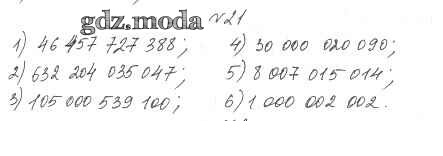 gdz.moda №21
1) 46 457 727 388; 4) 30 000 020 090;
2) 632 204 035 047; 5) 8 007 015 014;
3) 105 000 539 100; 6) 1 000 002 002.